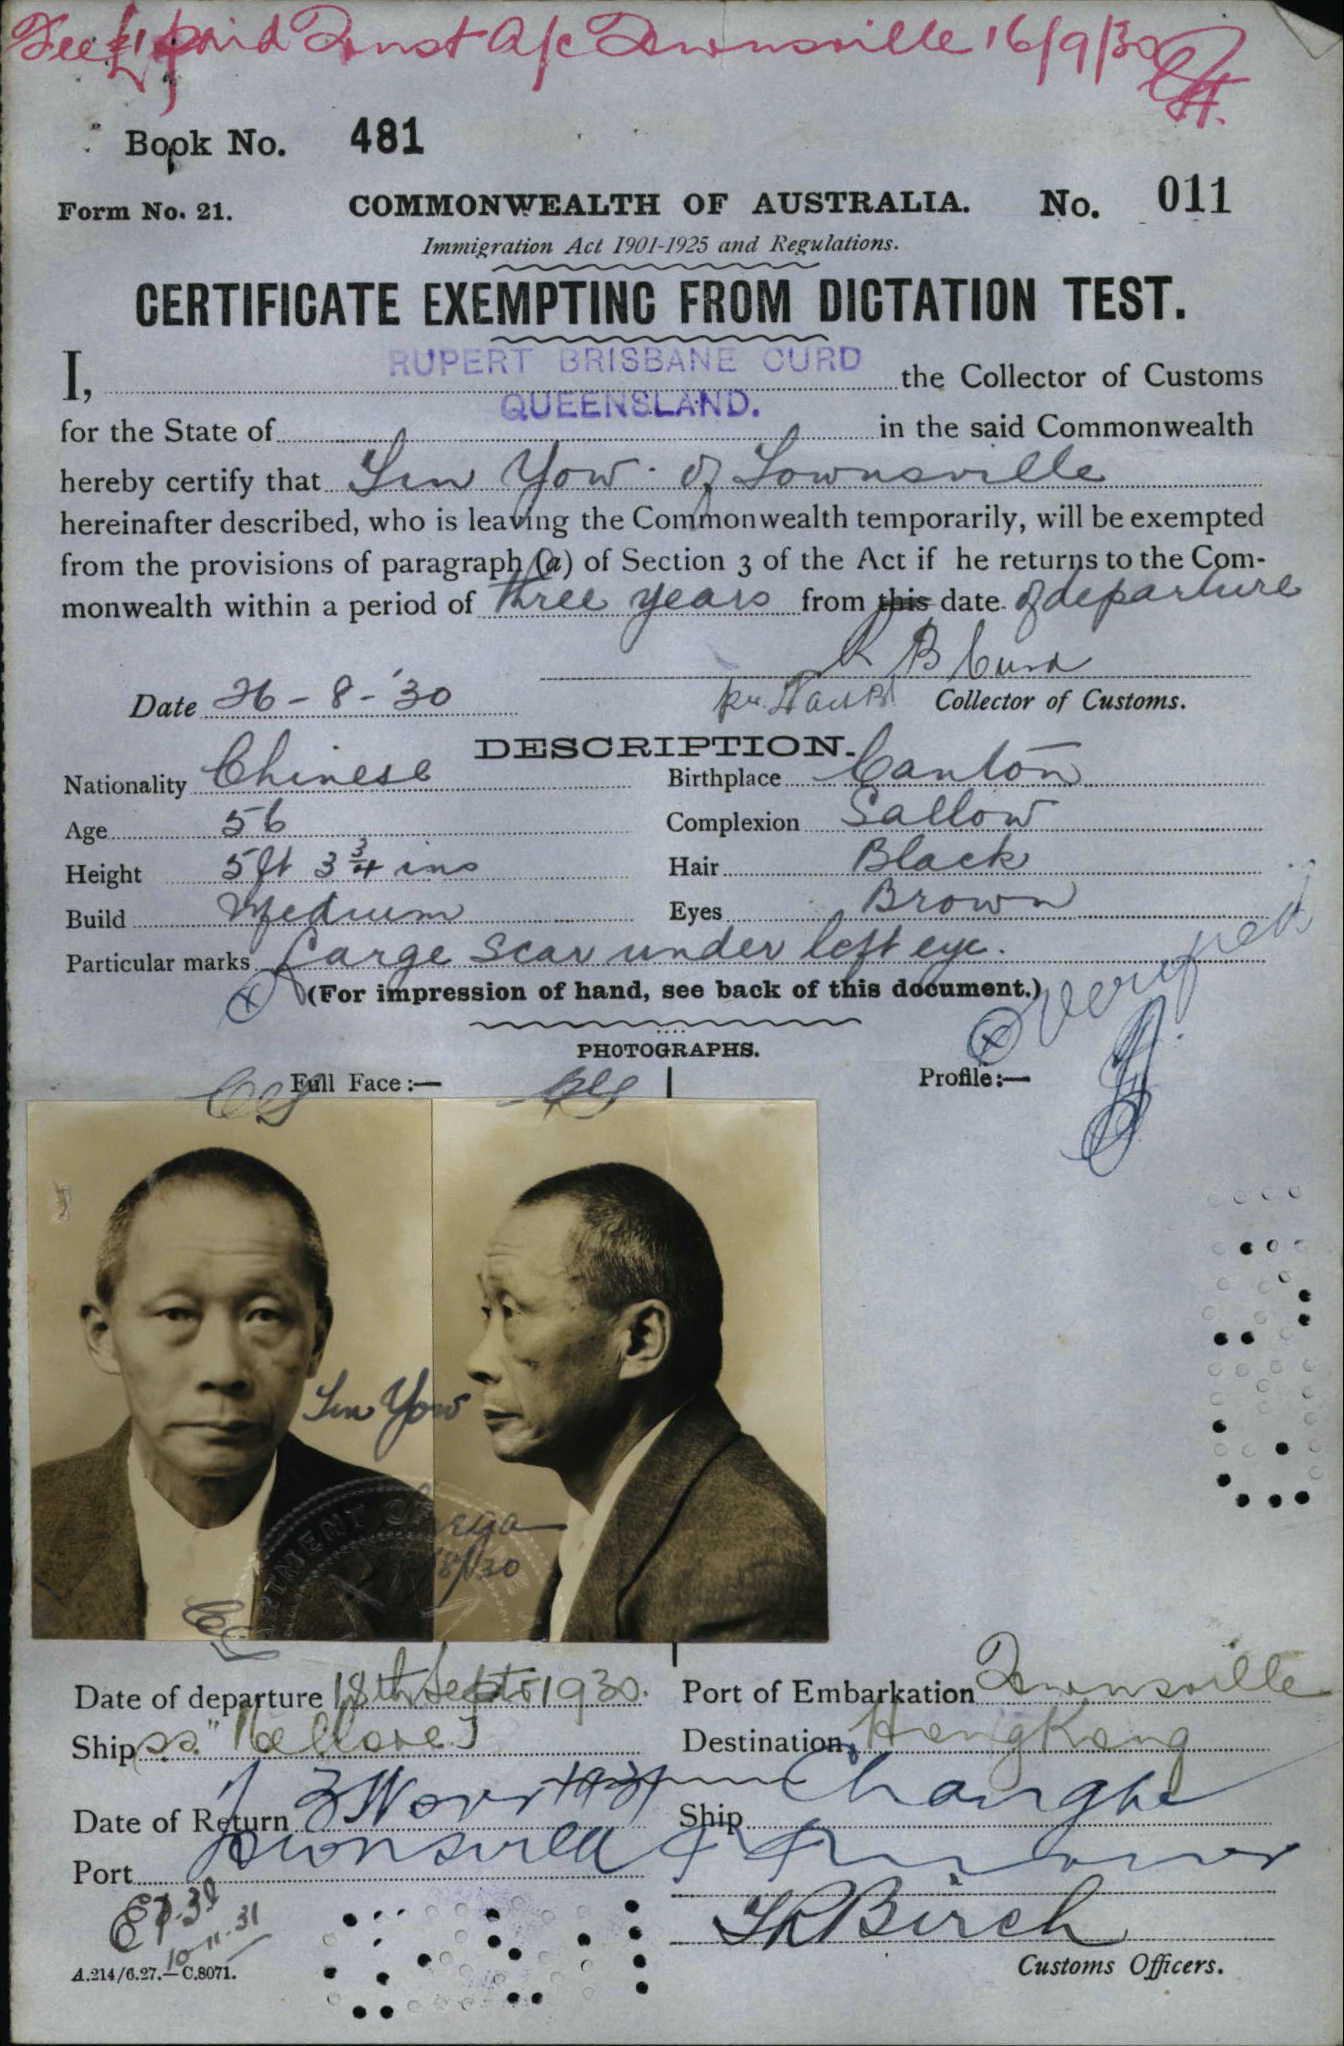 Fee £1 paid Trust A/c Townsville 16/9/30
Book No. 481
Form No. 21. COMMONWEALTH OF AUSTRALIA. No. 011
Immigration Act 1901-1925 and Regulations.
CERTIFICATE EXEMPTING FROM DICTATION TEST.
I, RUPERT BRISBANE CURD the Collector of Customs
for the State of QUEENSLAND. in the said Commonwealth
hereby certify that Sin Yow of Townsville
hereinafter described, who is leaving the Commonwealth temporarily, will be exempted
from the provisions of paragraph (a) of Section 3 of the Act if he returns to the Com-
monwealth within a period of three years from this date of departure
R B Curd
Date 26-8-'30 Collector of Customs.
DESCRIPTION.
Nationality Chinese Birthplace Canton
Age 56 Complexion Sallow
Height 5ft 3 3/4 ins Hair Black
Build Medium Eyes Brown
Particular marks Large scar under left eye.
(For impression of hand, see back of this document.)
verified
PHOTOGRAPHS.
Full Face:— Profile:—
Sin Yow
DEPARTMENT OF
Date of departure 18th Sept 1930. Port of Embarkation Townsville
Ship ss. "Nellore" Destination HongKong
Date of Return 3 Novr 1931 Ship Changte
Port Townsville
10-11-31
Birch
A.214/6.27.—C.8071. Customs Officers.